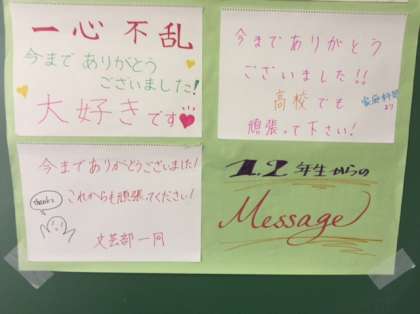 一心不乱
今まで ありがとう
ございました!
大好きです
今まで ありがとう
ございました!!
高校でも
家庭科部
より
頑張って下さい!
今までありがとうございました!
これからも頑張ってください!
thanks
文芸部一同
1.2年生からの
Message